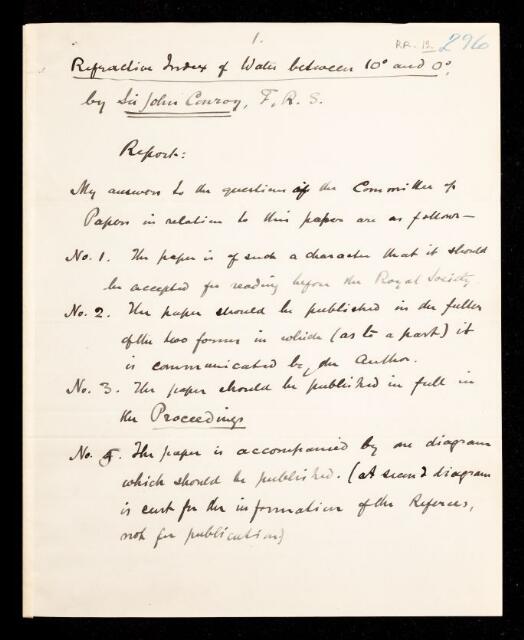 1.
RR. 12. 296
Refractive Index of Water between 10° and 0°,
by Sir John Conroy, F.R.S.
Report:
My answers to the questions of the Committee of
Papers in relation to this paper are as follows—
No. 1. The paper is of such a character that it should
be accepted for reading before the Royal Society.
No. 2. The paper should be published in the fuller
of the two forms in which (as to a part) it
is communicated by the Author.
No. 3. The paper should be published in full in
the Proceedings
No. 5. The paper is accompanied by one diagram
which should be published. (A second diagram
is sent for the information of the Referees,
not for publication)